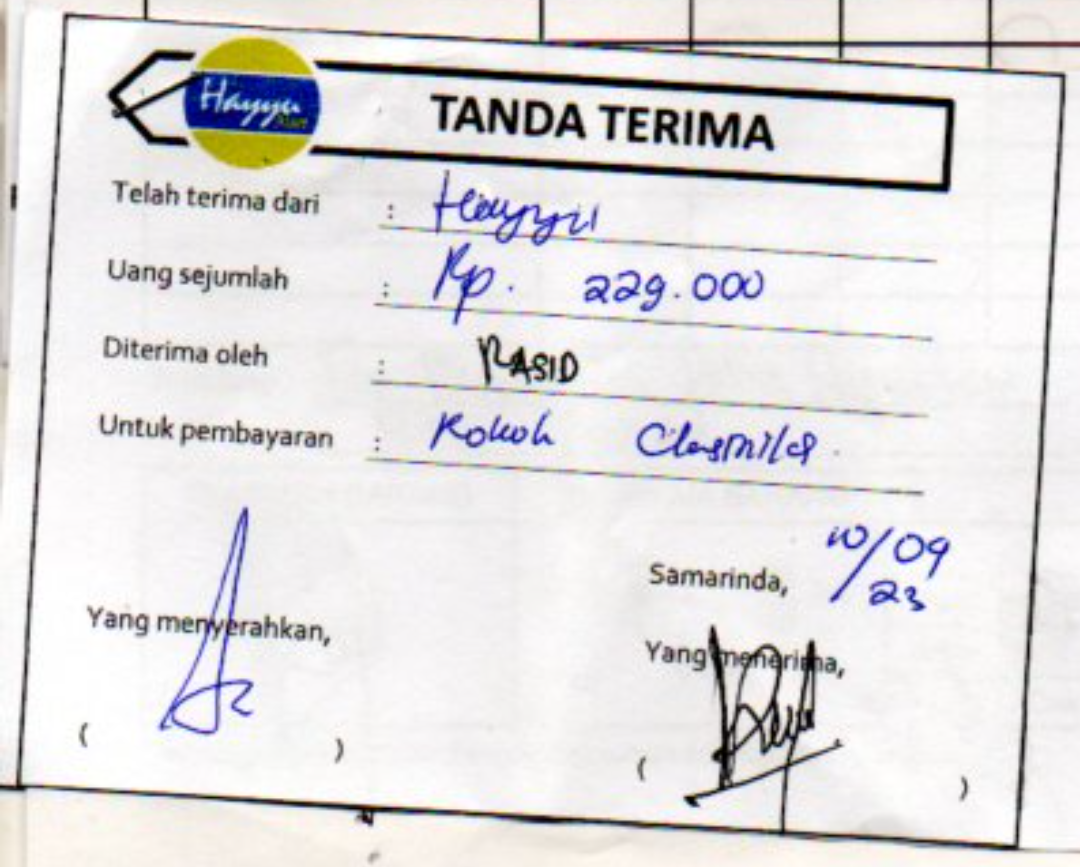 Hayyu
Mart
TANDA TERIMA
Telah terima dari : Hayyu
Uang sejumlah : Rp. 229.000
Diterima oleh : RASID
Untuk pembayaran : Rokok
Samarinda, 10/09
23
Yang menyerahkan,
Yang menerima,
( )
( )